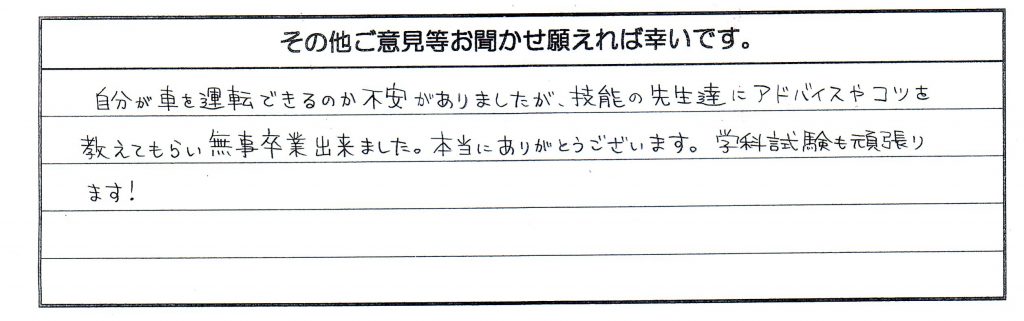 その他ご意見等お聞かせ願えれば幸いです。
自分が車を運転できるのか不安がありましたが、技能の先生達にアドバイスやコツを
教えてもらい無事卒業出来ました。本当にありがとうございます。学科試験も頑張り
ます!